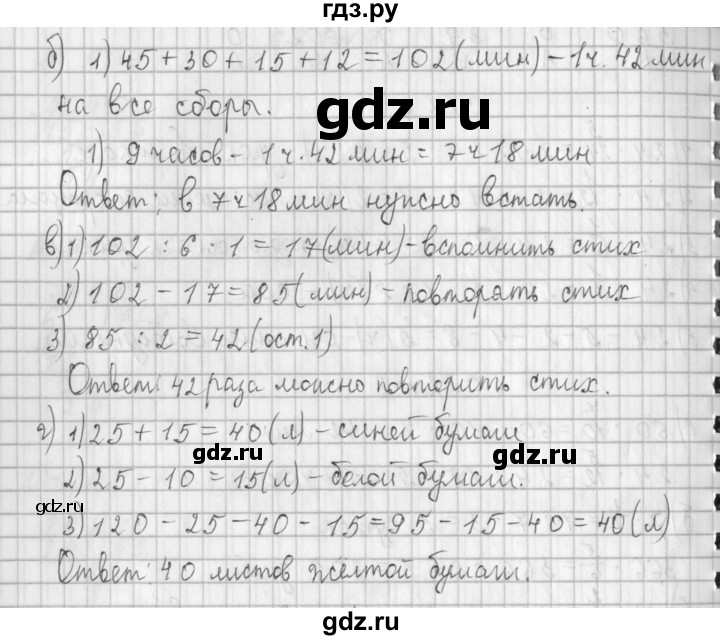 гдз.ру
б) 1) 45 + 30 + 15 + 12 = 102 (мин) - 1 ч. 42 мин
на все сборы.
gdz.ru
1) 9 часов - 1 ч. 42 мин = 7 ч 18 мин
Ответ: в 7 ч 18 мин нужно встать.
в) 1) 102 : 6 · 1 = 17 (мин) - вспомнить стих
2) 102 - 17 = 85 (мин) - повторять стих
3) 85 : 2 = 42 (ост. 1)
Ответ: 42 раза можно повторить стих.
г) 1) 25 + 15 = 40 (л) - синей бумаги
gdz.ru gdz.ru
2) 25 - 10 = 15 (л) - белой бумаги.
gdz.ru
3) 120 - 25 - 40 - 15 = 95 - 15 - 40 = 40 (л)
Ответ: 40 листов жёлтой бумаги.
gdz.ru
gdz.ru